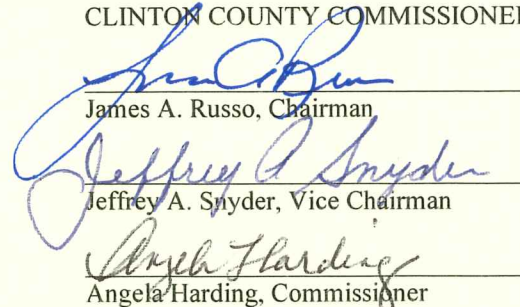 CLINTON COUNTY COMMISSIONER
James A. Russo, Chairman
Jeffrey A Snyder
Jeffrey A. Snyder, Vice Chairman
Angela Harding
Angela Harding, Commissioner